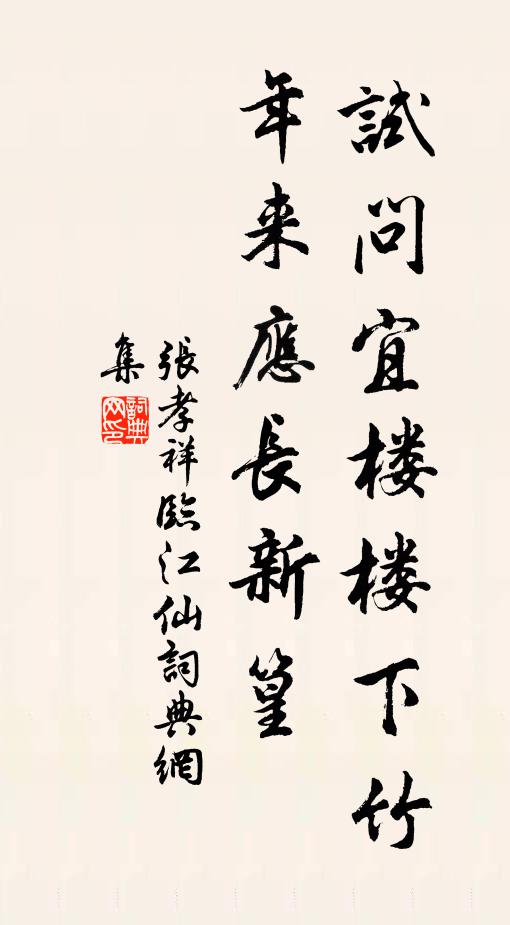 試問宜楼楼下竹
年来應長新篁
張孝祥臨江仙詞典網
集
詞典
网印